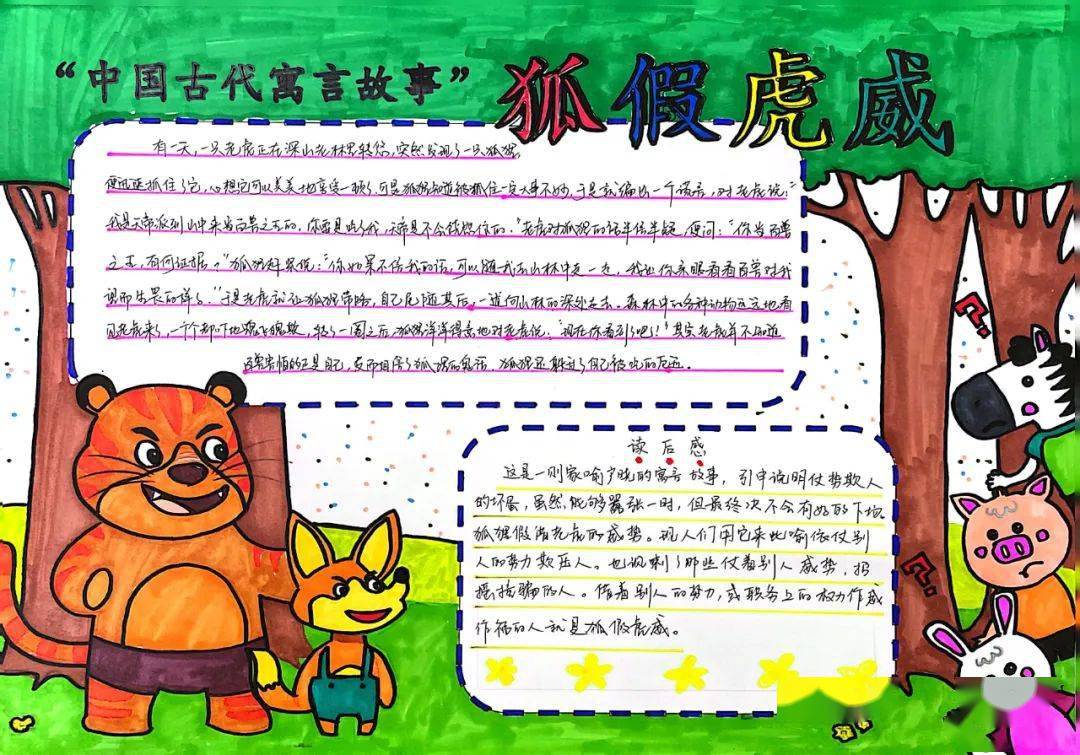 “中国古代寓言故事”
狐假虎威
有一天，一只老虎正在深山老林里转悠，突然发现了一只狐狸，
便迅速抓住了它，心想它可以美美地享受一顿了，可是狐狸知道被抓住一定大事不妙，于是就编出一个谎言，对老虎说：“
我是天帝派到山中来当百兽之王的，你要是吃了我，天帝是不会饶恕你的。”老虎对狐狸的话半信半疑，便问：“你当百兽
之王，有何证据？”狐狸赶紧说：“你如果不信我的话，可以随我去山林中走一走，我让你亲眼看看百兽对我
望而生畏的样子。”于是老虎就让狐狸带路，自己尾随其后，一道向山林的深处走去。森林中的各种动物远远地看
见老虎来了，一个个都吓地魂飞魄散，转了一圈之后，狐狸洋洋得意地对老虎说：“现在你看到了吧！”其实老虎并不知道
百兽害怕的正是自己，反而相信了狐狸的鬼话，狐狸还躲过了自己被吃的厄运。
读后感
这是一则家喻户晓的寓言故事，引申说明仗势欺人
的坏蛋，虽然能够嚣张一时，但最终决不会有好的下场
狐狸假借老虎的威势。现人们用它来比喻依仗别
人的势力欺压人。也讽刺了那些仗着别人威势，招
摇撞骗的人。借着别人的势力，或职务上的权力作威
作福的人就是狐假虎威。